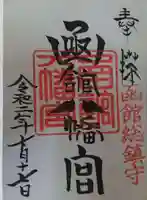 奉拝
函館総鎮守
函館八幡宮
令和二年十月十七日